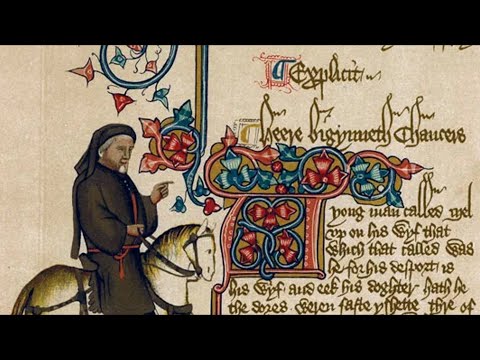 Explicit
Heere bigynneth Chaucers
A yong man called Mel
vp on his wyf that
which that called was
for his desport is
his wyf and eek his doghter hath he
the dores weren faste yshette thre of